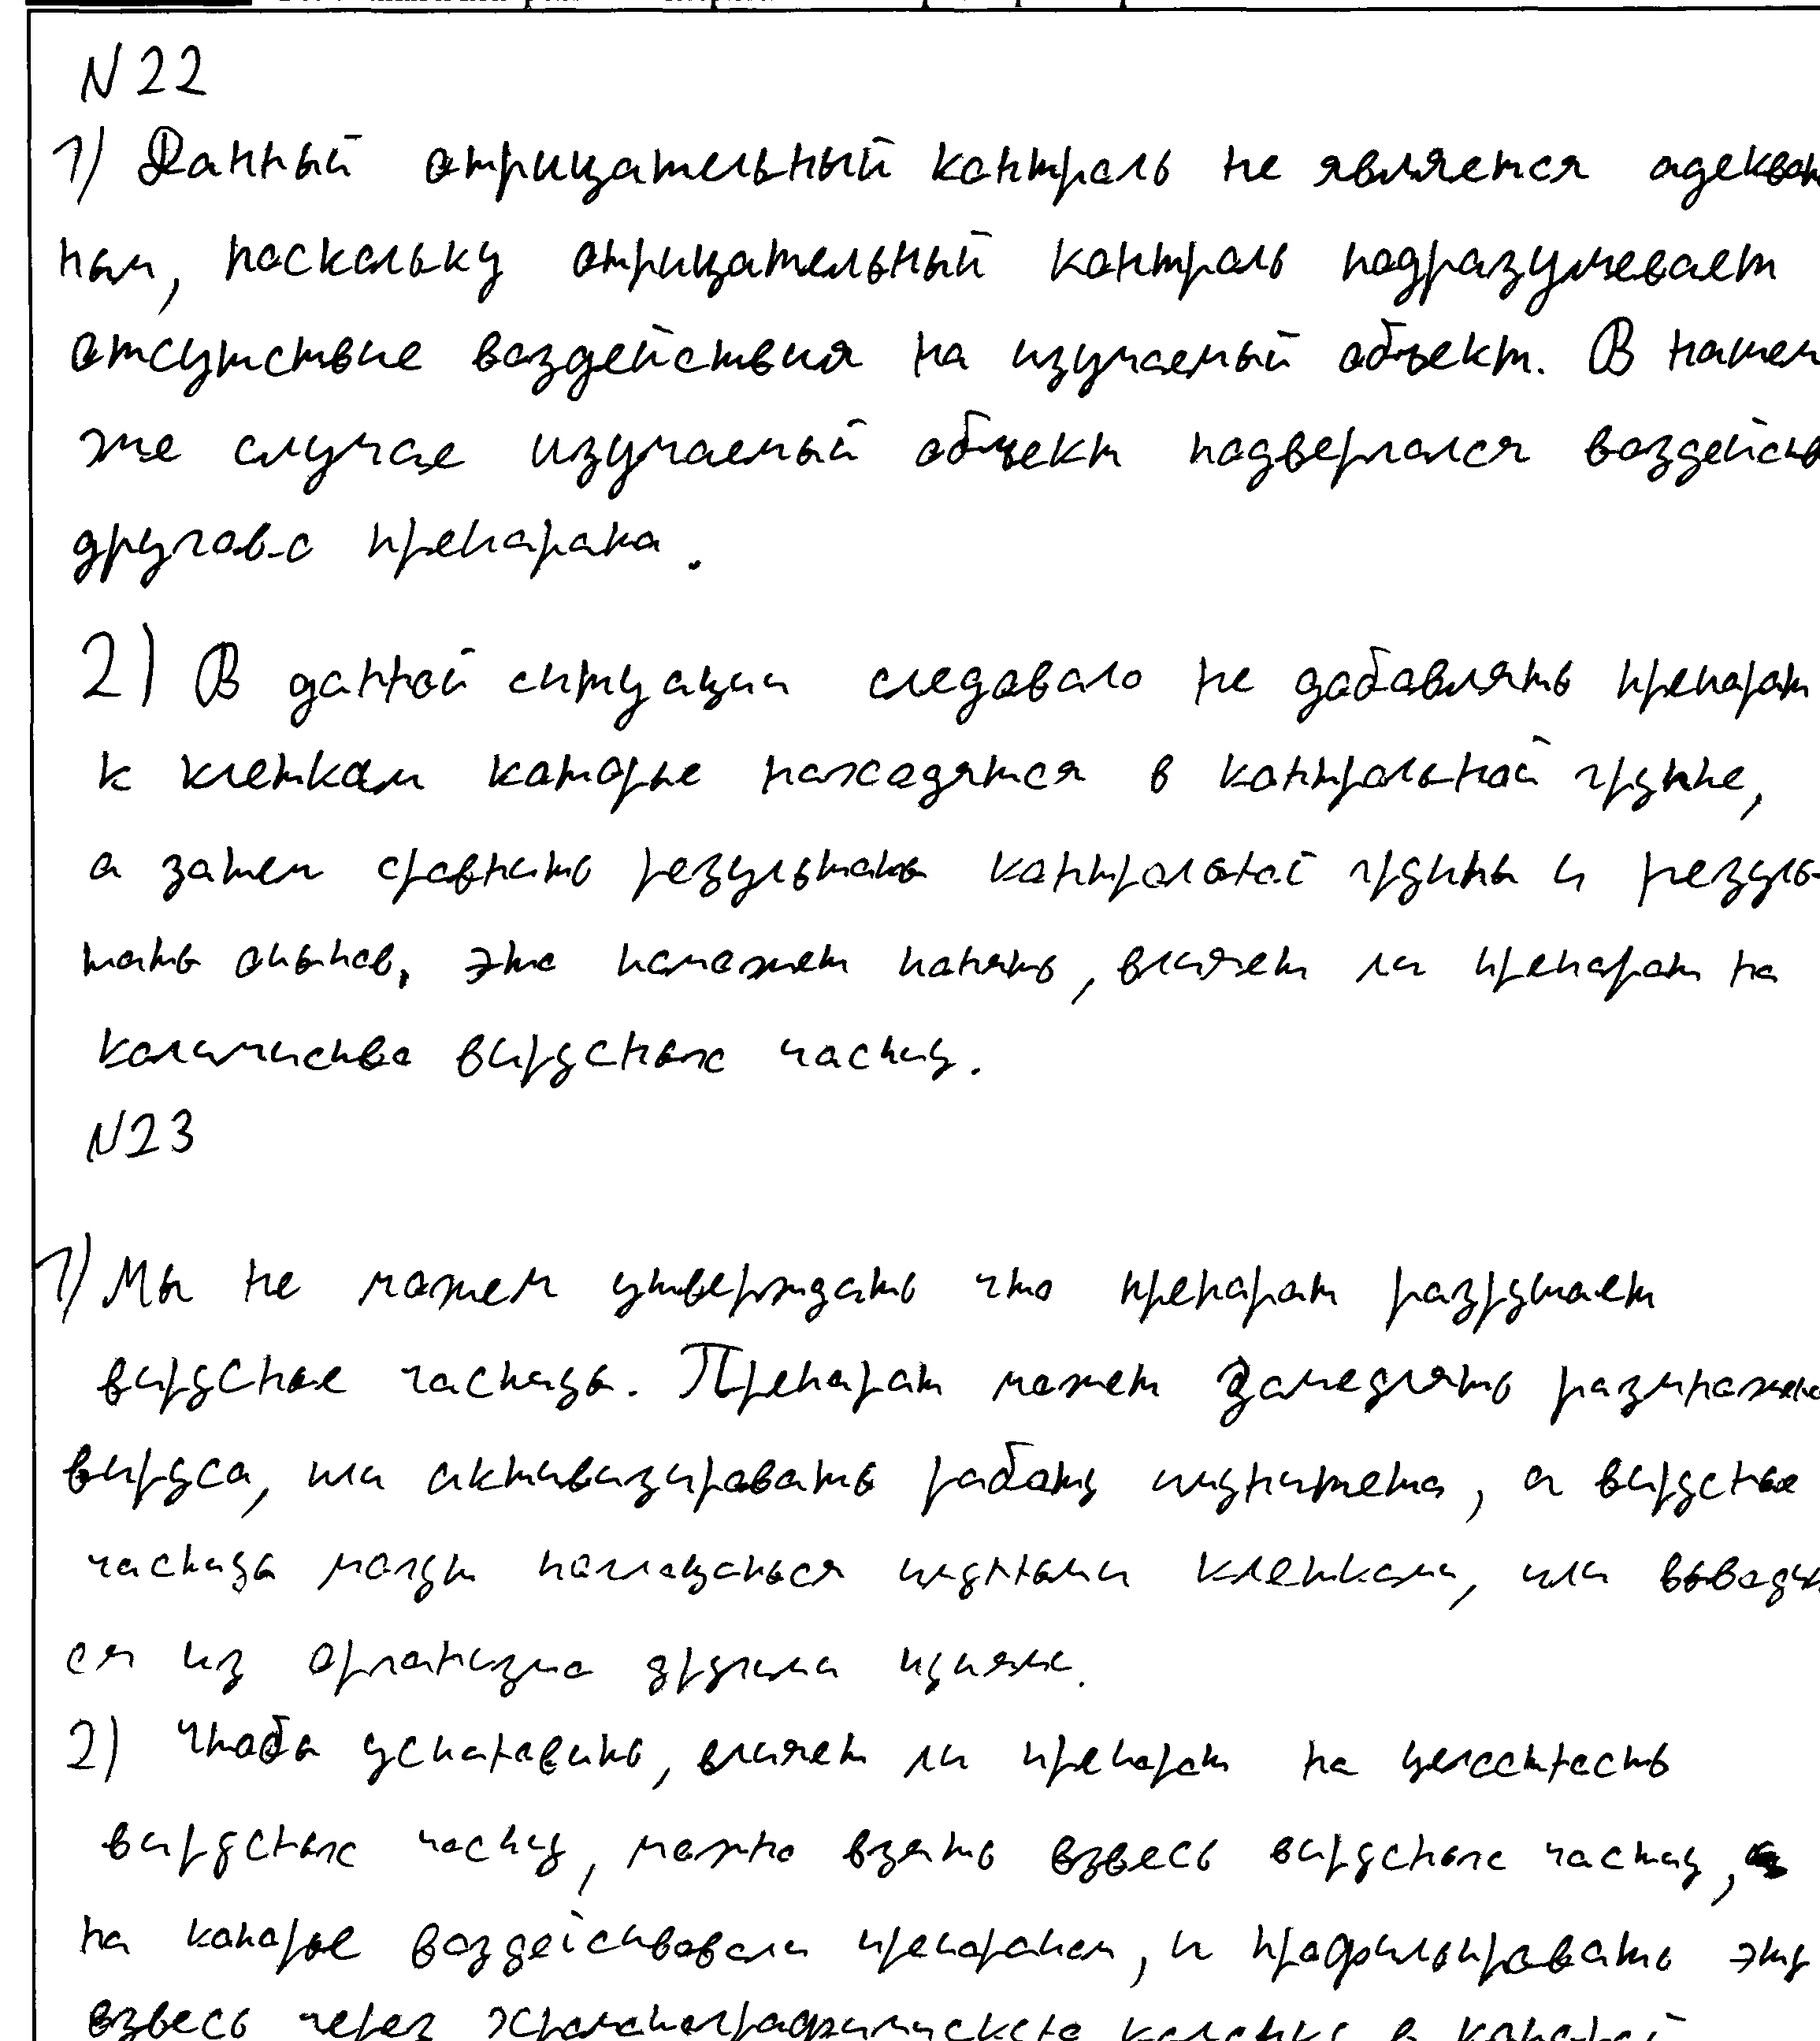 N 22
1) Данный отрицательный контроль не является адекват
ным, поскольку отрицательный контроль подразумевает
отсутствие воздействия на изучаемый объект. В нашем
же случае изучаемый объект подвергался воздейств
другово препарата.
2) В данной ситуации следовало не добавлять препарат
к клеткам которые находятся в контрольной группе,
а затем сравнить результаты контрольной группы и резуль-
таты опытов, это поможет понять, влияет ли препарат на
количиство вирусных частиц.
N23
1) Мы не можем утверждать что препарат разрушает
вирусные частицы. Препарат может замедлять размноже
вируса, или активизировать работу имунитета, а вирусные
частицы могут поглощаться имунными клетками, или выводит
ся из организма другими путями.
2) Чтобы установить, влияет ли препарат на целостность
вирусных частиц, можно взять взвесь вирусных частиц,
на которые воздействовали препаратом, и профильтровать эту
взвесь через колонку в которой